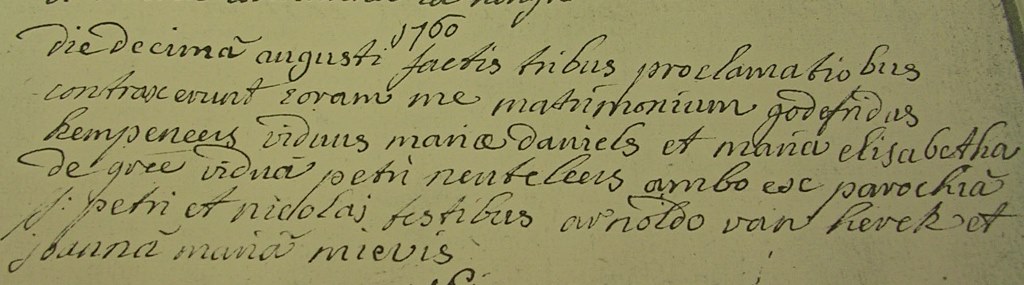 1760
die decimâ augusti factis tribus proclamatiobus
contraxerunt coram me matrimonium godefridus
kempeneers viduus mariæ daniels et maria elisabetha
de gree viduâ petri neuteleers ambo ex parochiâ
s: petri et nicolaj testibus arnoldo van herck et
joannâ mariâ mievis